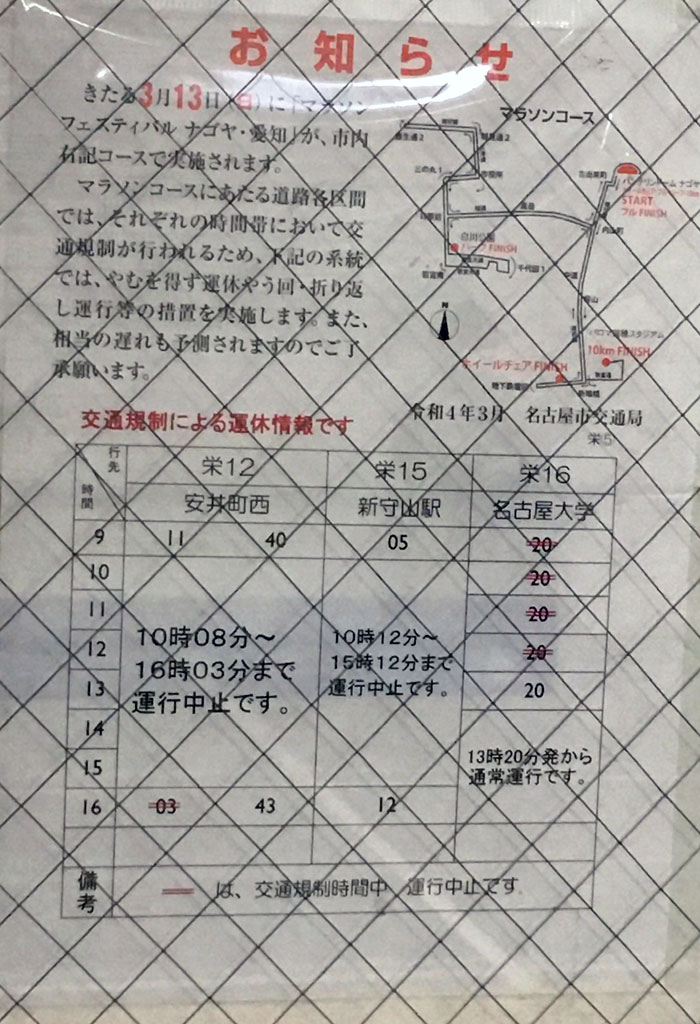 お知らせ
きたる3月13日(日)に「マラソン
フェスティバル ナゴヤ・愛知」が、市内
右記コースで実施されます。
マラソンコースにあたる道路各区間
では、それぞれの時間帯において交
通規制が行われるため、下記の系統
では、やむを得ず運休やう回・折り返
し運行等の措置を実施します。また、
相当の遅れも予測されますのでご了
承願います。
マラソンコース
START
フル FINISH
白川公園
ハーフ FINISH
千代田1
N
パロマ瑞穂スタジアム
10km FINISH
ホイールチェア FINISH
令和4年3月 名古屋市交通局
栄⑤
交通規制による運休情報です
行先 栄12 栄15 栄16
時間 安井町西 新守山駅 名古屋大学
9 11 40 05 20
10 20
11 20
12 20
13 20
14
15
16 03 43 12
10時08分~
16時03分まで
運行中止です。
10時12分~
15時12分まで
運行中止です。
13時20分発から
通常運行です。
備考 は、交通規制時間中 運行中止です。